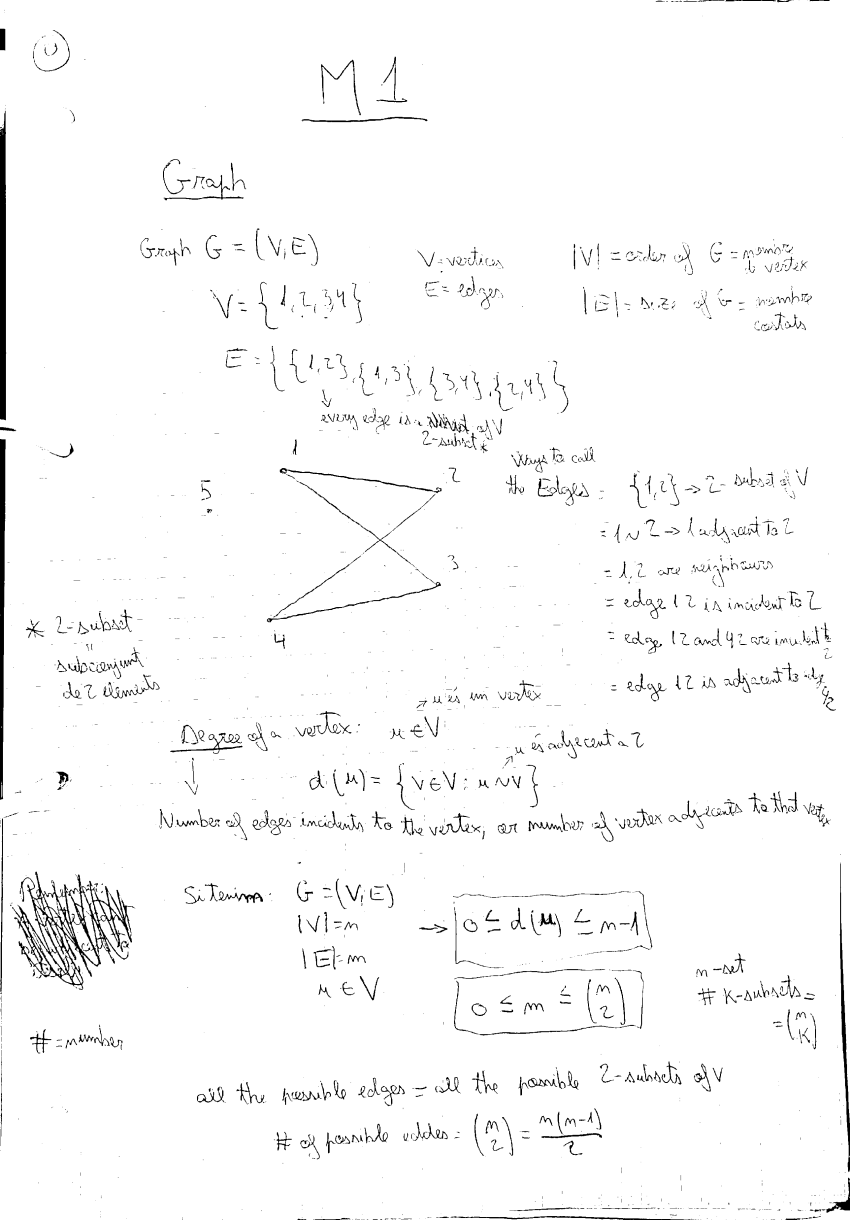 M1
Graph
Graph G = (V, E)
V = vertices
E = edges
|V| = order of G = nombre
d vertex
|E| = size of G = nombre
costats
V = {1, 2, 3, 4}
E = {{1,2}, {1,3}, {3,4}, {2,4}}
every edge is a subset of V
2-subset *
1
2
3
4
5
Ways to call
the Edges = {1,2} → 2-subset of V
= 1 ~ 2 → 1 adjacent to 2
= 1, 2 are neighbours
= edge 12 is incident to 2
= edge 12 and 42 are incident to
2
= edge 12 is adjacent to edge
42
* 2-subset
"
subconjunt
de 2 elements
Degree of a vertex: u ∈ V
→ u és un vertex
d(u) = {v ∈ V : u ~ v}
→ u és adjecent a 2
Number of edges incidents to the vertex, or number of vertex adjecents to that vertex
Si tenim: G = (V, E)
|V| = n
|E| = m
u ∈ V
→ 0 ≤ d(u) ≤ n-1
0 ≤ m ≤ (n 2)
n-set
# K-subsets =
= (n K)
# = number
all the possible edges = all the possible 2-subsets of V
# of possible = (n 2) = n(n-1)/2